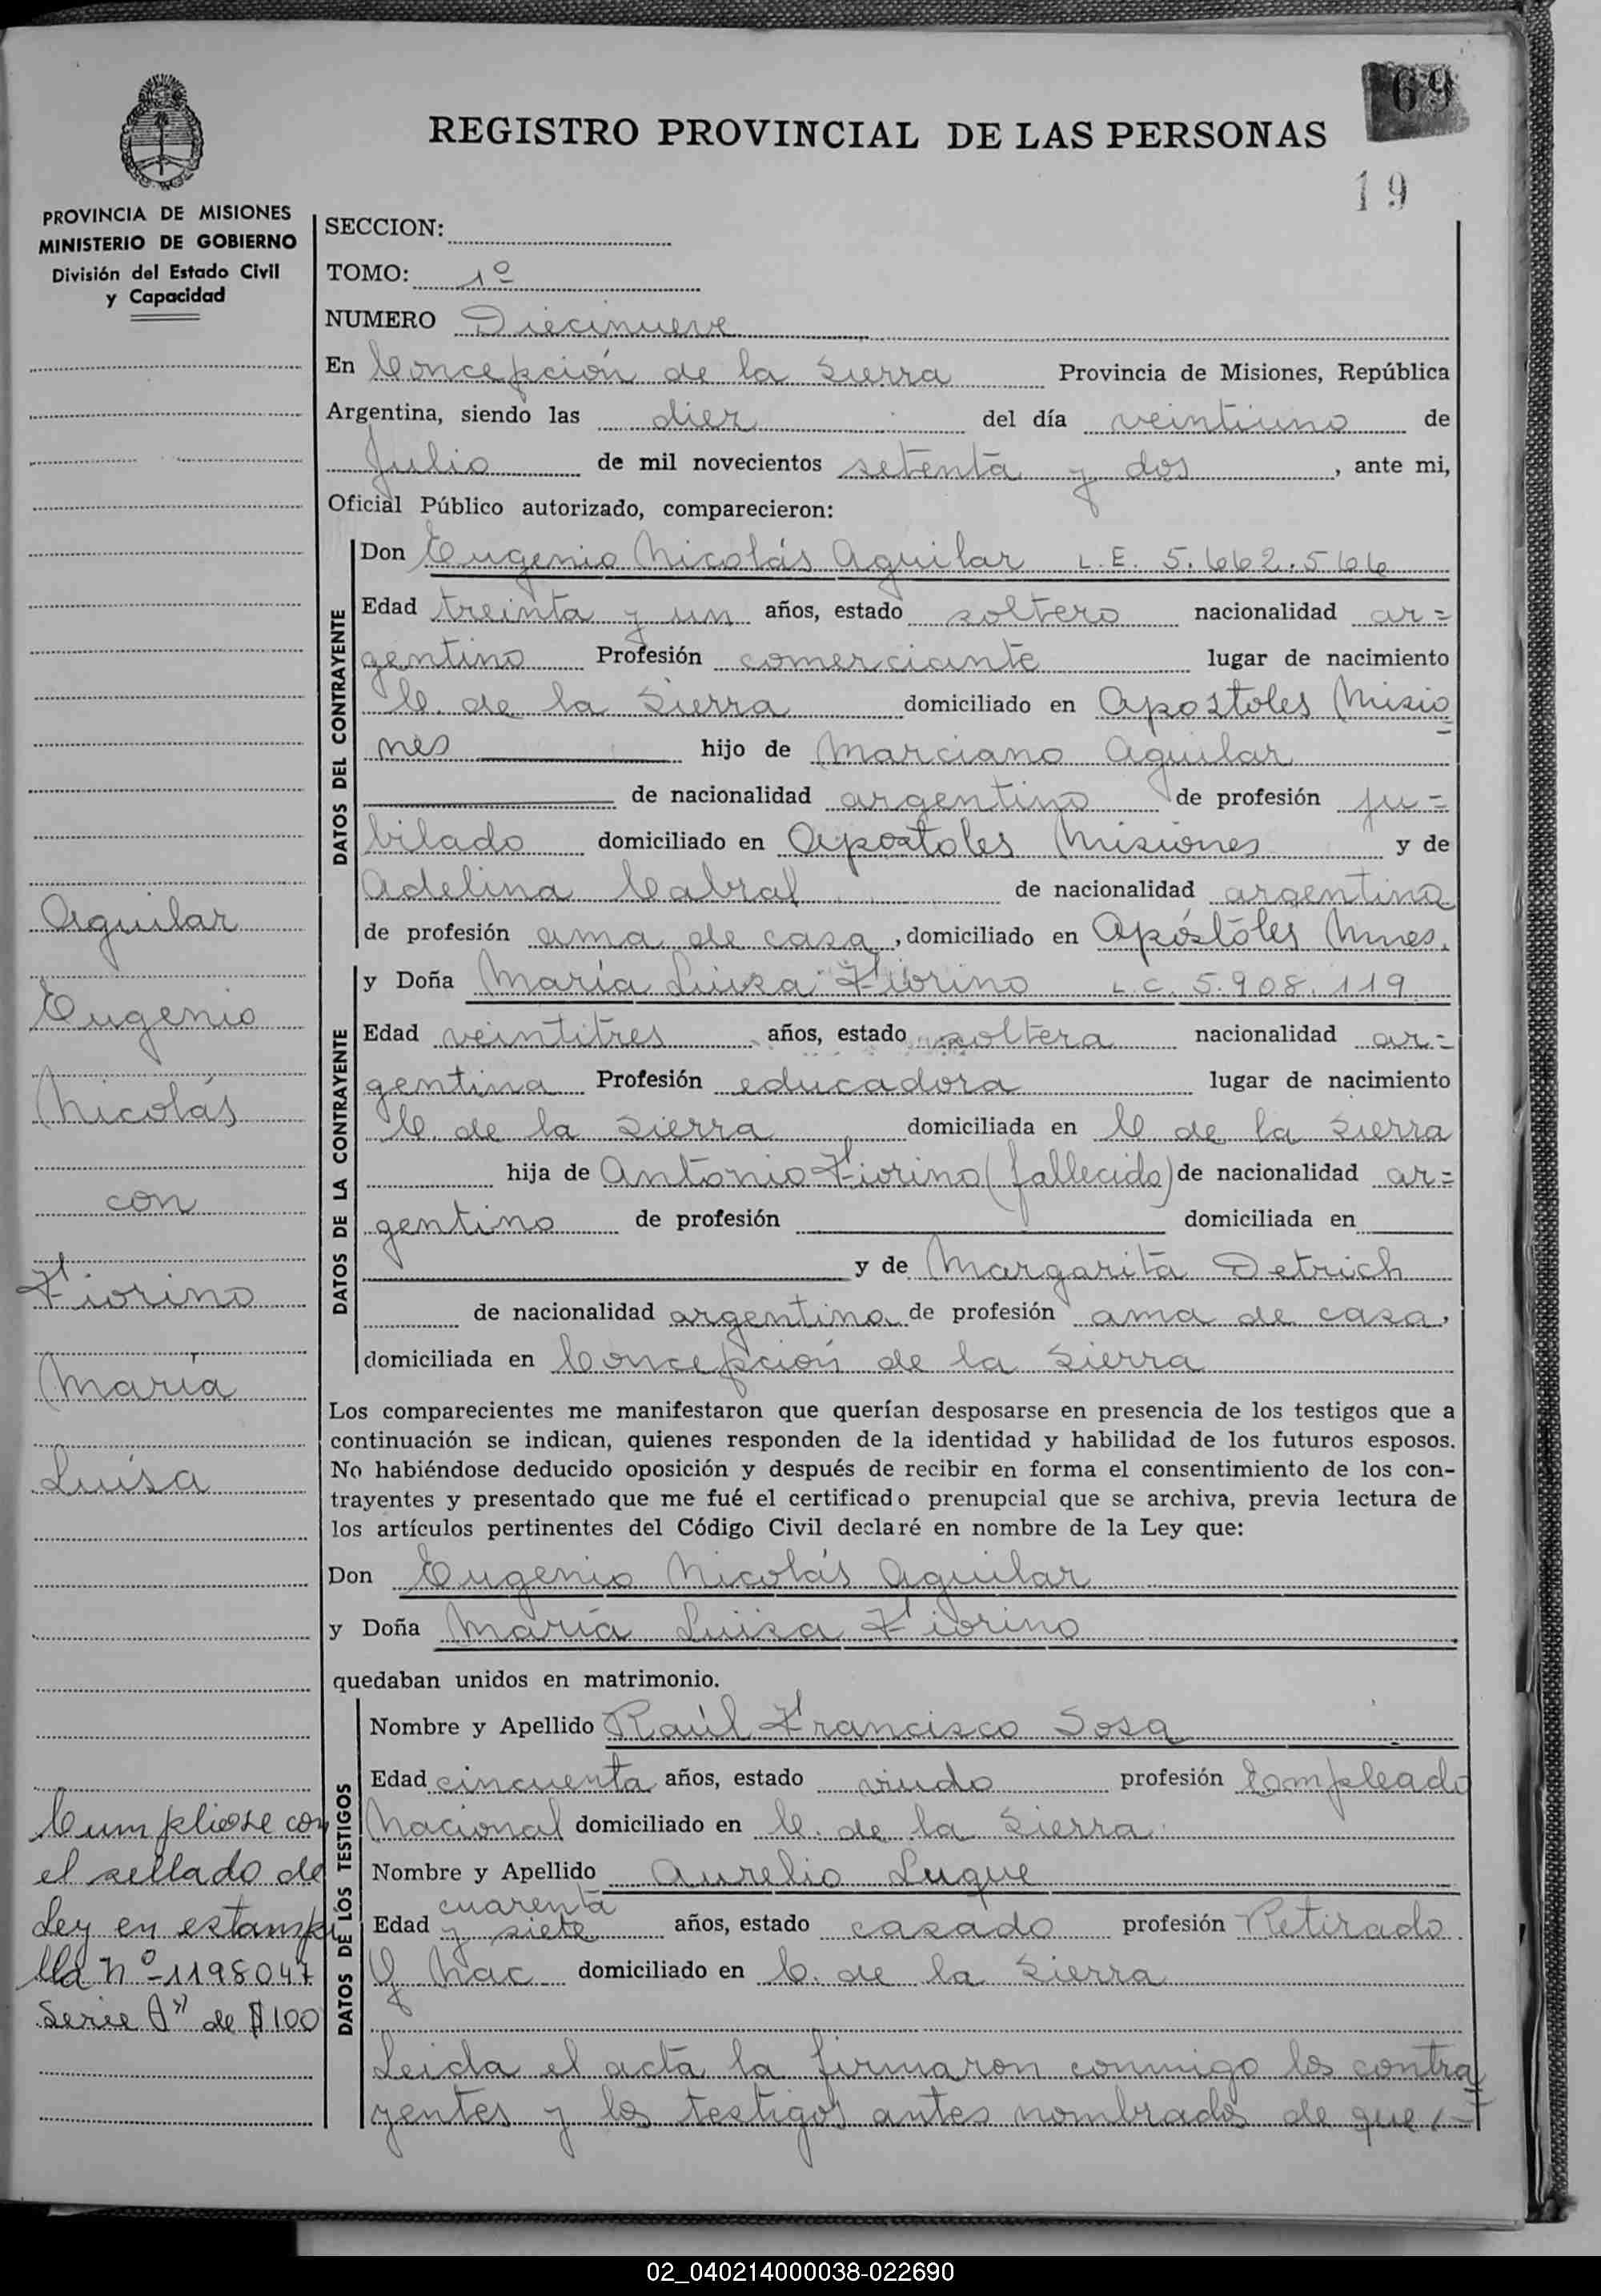 69
REGISTRO PROVINCIAL DE LAS PERSONAS
19
PROVINCIA DE MISIONES
MINISTERIO DE GOBIERNO
División del Estado Civil
y Capacidad
SECCION:
TOMO: 1º
NUMERO Diecinueve
En Concepción de la Sierra Provincia de Misiones, República
Argentina, siendo las diez del día veintiuno de
Julio de mil novecientos setenta y dos, ante mi,
Oficial Público autorizado, comparecieron:
DATOS DEL CONTRAYENTE
Don Eugenio Nicolás Aguilar L.E. 5.662.566
Edad treinta y un años, estado soltero nacionalidad ar=
gentino Profesión comerciante lugar de nacimiento
C. de la Sierra domiciliado en Apostoles Misio=
nes hijo de Marciano Aguilar
de nacionalidad argentino de profesión ju=
bilado domiciliado en Apostoles Misiones y de
Adelina Cabral de nacionalidad argentina
de profesión ama de casa, domiciliado en Apóstoles Mnes.
DATOS DE LA CONTRAYENTE
y Doña María Luisa Fiorino L.C. 5.908.119
Edad veintitres años, estado soltera nacionalidad ar=
gentina Profesión educadora lugar de nacimiento
C de la Sierra domiciliada en C de la Sierra
hija de Antonio Fiorino (fallecido) de nacionalidad ar=
gentino de profesión domiciliada en
y de Margarita Detrich
de nacionalidad argentina de profesión ama de casa,
domiciliada en Concepción de la Sierra
Los comparecientes me manifestaron que querían desposarse en presencia de los testigos que a
continuación se indican, quienes responden de la identidad y habilidad de los futuros esposos.
No habiéndose deducido oposición y después de recibir en forma el consentimiento de los con-
trayentes y presentado que me fué el certificado prenupcial que se archiva, previa lectura de
los artículos pertinentes del Código Civil declaré en nombre de la Ley que:
Don Eugenio Nicolás Aguilar
y Doña María Luisa Fiorino
quedaban unidos en matrimonio.
DATOS DE LOS TESTIGOS
Nombre y Apellido Raúl Francisco Sosa
Edad cincuenta años, estado viudo profesión Empleado
Nacional domiciliado en C. de la Sierra
Nombre y Apellido Aurelio Luque
Edad cuarenta y siete años, estado casado profesión Retirado
G Nac domiciliado en C. de la Sierra
Leida el acta la firmaron conmigo los contra=
yentes y los testigos antes nombrados de que
Aguilar
Eugenio
Nicolás
con
Fiorino
María
Luisa
Cumpliose con
el sellado de
Ley en estampi
lla Nº-1198047
Serie A" de $100
02_040214000038-022690